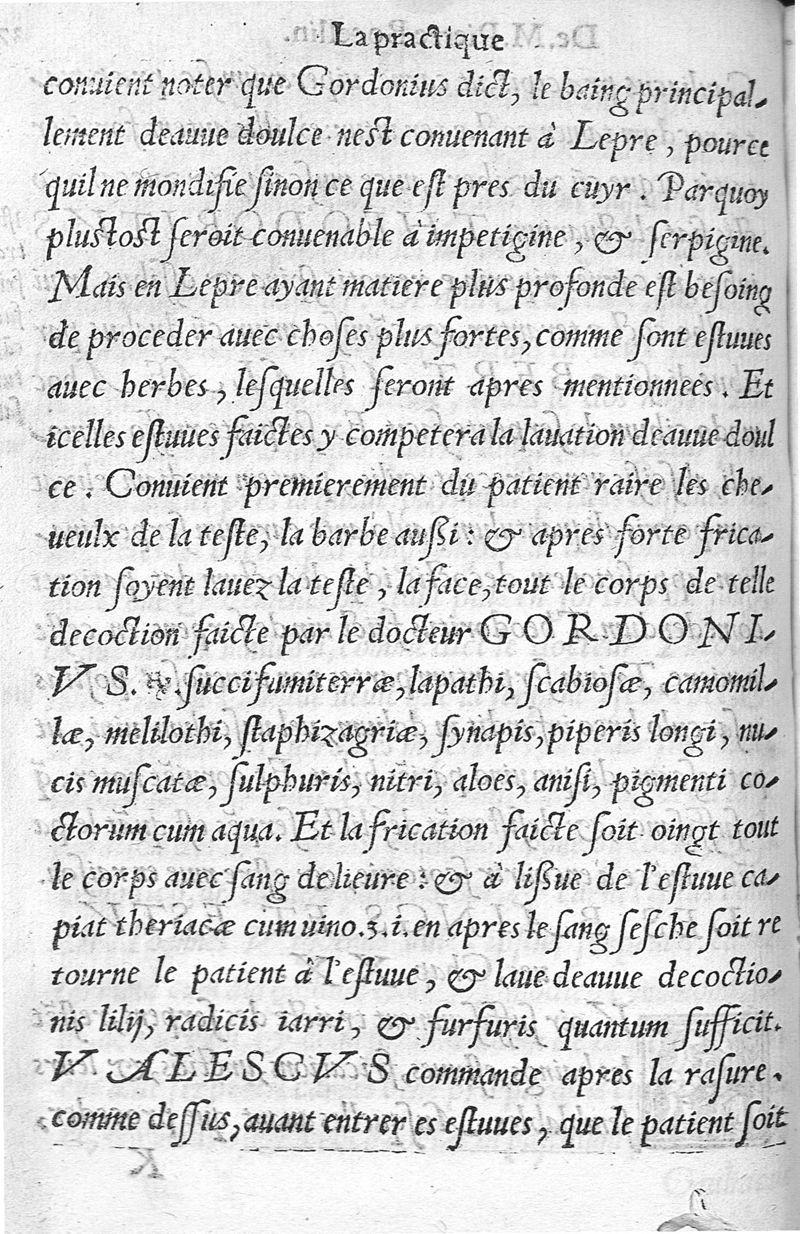 La practique
conuient noter que Gordonius dict, le baing principal-
lement deauue doulce nest conuenant à Lepre, pource
quil ne mondifie ſinon ce que eſt pres du cuyr. Parquoy
pluſtoſt ſeroit conuenable à impetigine, & ſerpigine.
Mais en Lepre ayant matiere plus profonde eſt beſoing
de proceder auec choſes plus fortes, comme ſont eſtuues
auec herbes, leſquelles ſeront apres mentionnees. Et
icelles eſtuues faictes y competera la lauation deauue doul
ce. Conuient premierement du patient raire les che-
ueulx de la teſte, la barbe auſſi: & apres forte frica-
tion ſoyent lauez la teſte, la face, tout le corps de telle
decoction faicte par le docteur GORDONI-
VS. ℞. ſucci fumiterræ, lapathi, ſcabioſæ, camomil-
læ, melilothi, ſtaphizagriæ, ſynapis, piperis longi, nu-
cis muſcatæ, ſulphuris, nitri, aloes, aniſi, pigmenti co-
ctorum cum aqua. Et la frication faicte ſoit oingt tout
le corps auec ſang de lieure: & à liſſue de l'eſtuue ca-
piat theriacæ cum uino.ʒ.i. en apres le ſang ſeſche ſoit re
tourne le patient à l'eſtuue, & laue deauue decoctio-
nis lilij, radicis iarri, & furfuris quantum ſufficit.
VALESCVS commande apres la raſure.
comme deſſus, auant entrer es eſtuues, que le patient ſoit